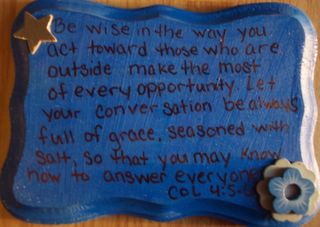 Be wise in the way you
act toward those who are
outside make the most
of every opportunity. Let
your conversation be always
full of grace, seasoned with
salt, so that you may know
how to answer everyone
Col 4:5-6